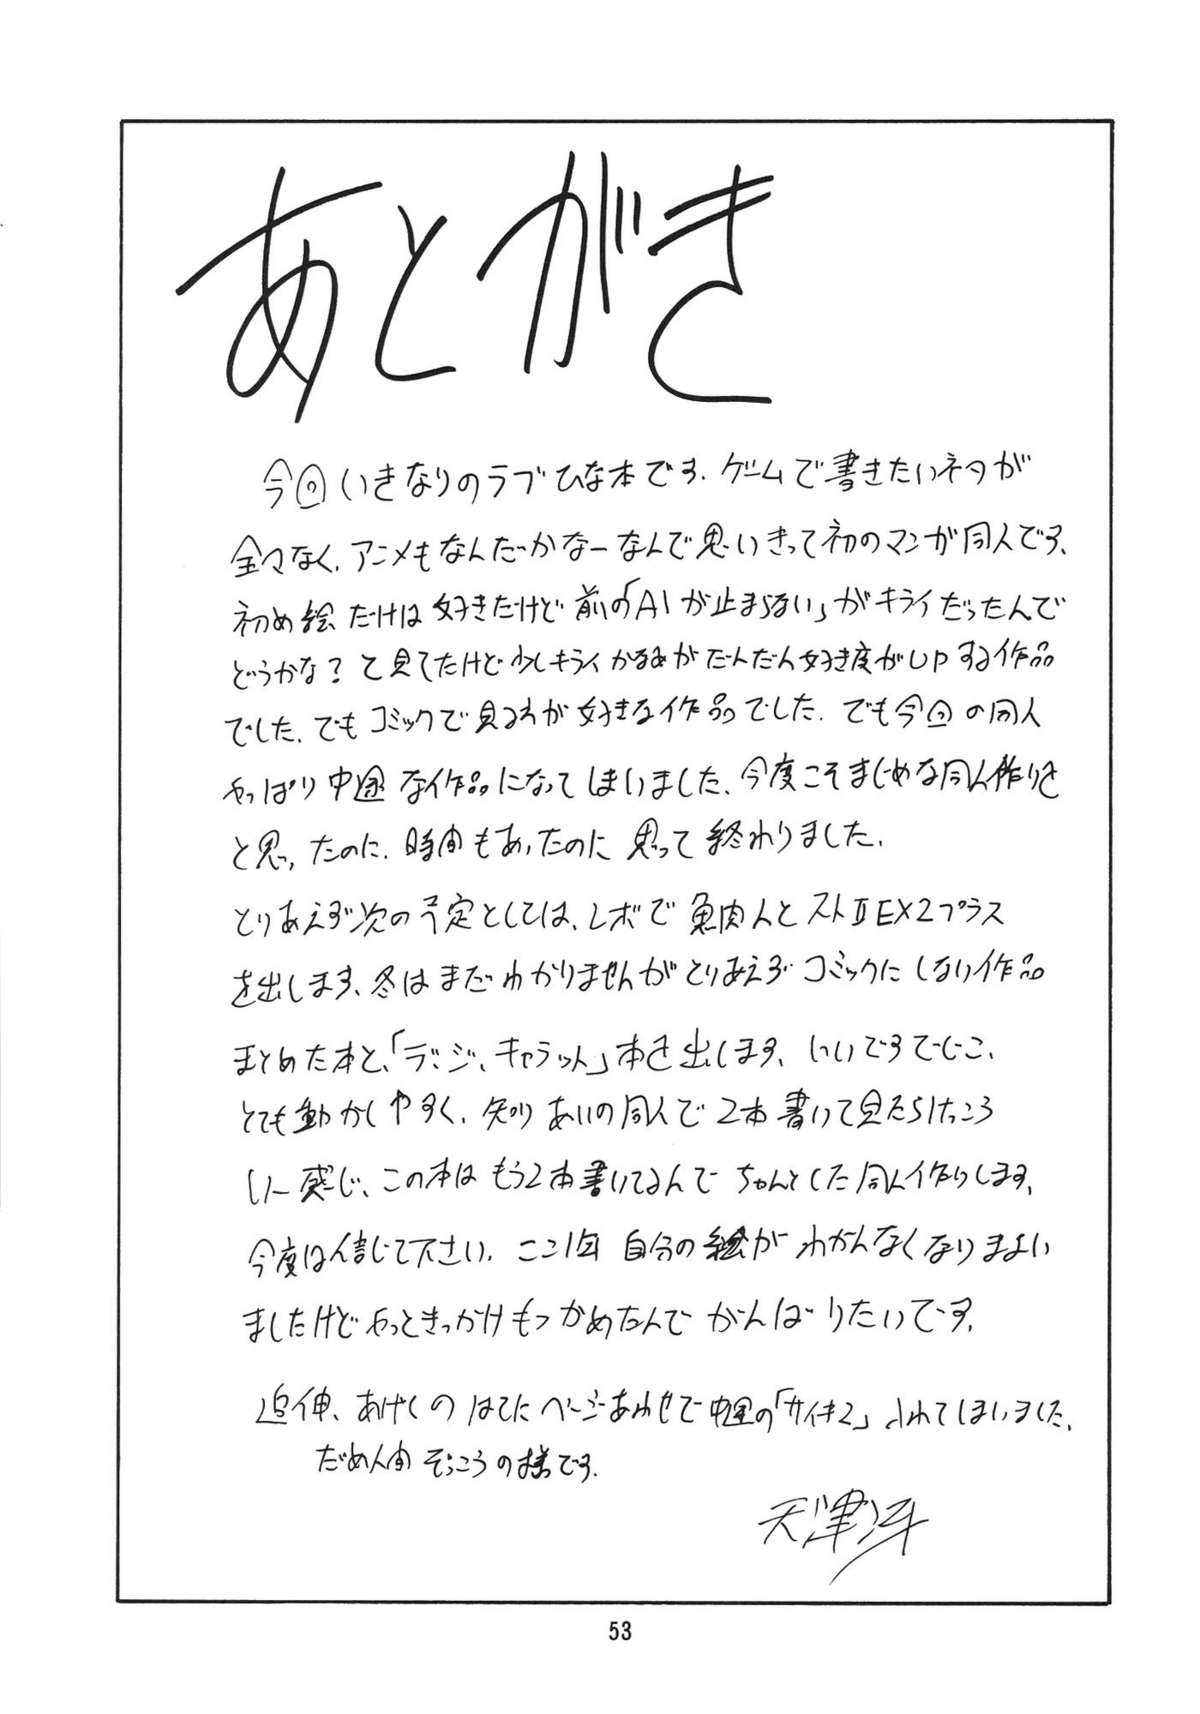 あとがき
今回いきなりのラブひな本です.ゲームで書きたいネタが
全々なく.アニメもなんだかなーなんで思いきって初のマンガ同人です、
初め絵だけは好きだけど前の「AIが止まらない」がキライだったんで
どうかな?と見てたけど少しキライかるみがだんだん好き度がUPする作品
でした.でもコミックで見るわが好きな作品でした.でも今回の同人
やっぱり中途な作品になってしまいました、今度こそまじめな同人作りを
と思ったのに.時間もあったのに思って終わりました.
とりあえず次の予定としては、レボで魚肉人とストⅡEX2プラス
を出します、冬はまだわかりませんがとりあえずコミックにしない作品
まとめた本と、「デ、ジ、キャラット」本を出します、いいですでじこ、
とても動かしやすく、知りあいの同人で2本書いて見たらけっこう
いー感じ、この本はもう2本書いてるんでちゃんとした同人作りします、
今度は信じて下さい.ここ1年自分の絵がわかんなくなりまよい
ましたけどやっときっかけもつかめたんでがんばりたいです、
追伸、あげくのはてにページあわせで中途の「サイキ2」入れてしまいました.
だめ人間ぞっこうの様です.
天津冴
53